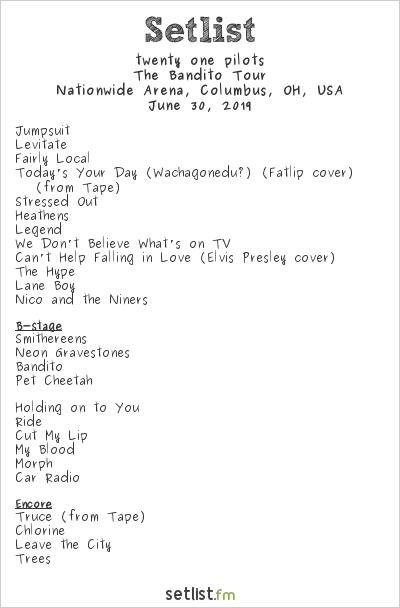 Setlist
twenty one pilots
The Bandito Tour
Nationwide Arena, Columbus, OH, USA
June 30, 2019
Jumpsuit
Levitate
Fairly Local
Today's Your Day (Wachagonedu?) (Fatlip cover)
(from Tape)
Stressed Out
Heathens
Legend
We Don't Believe What's on TV
Can't Help Falling in Love (Elvis Presley cover)
The Hype
Lane Boy
Nico and the Niners
B-stage
Smithereens
Neon Gravestones
Bandito
Pet Cheetah
Holding on to You
Ride
Cut My Lip
My Blood
Morph
Car Radio
Encore
Truce (from Tape)
Chlorine
Leave the City
Trees
setlist.fm